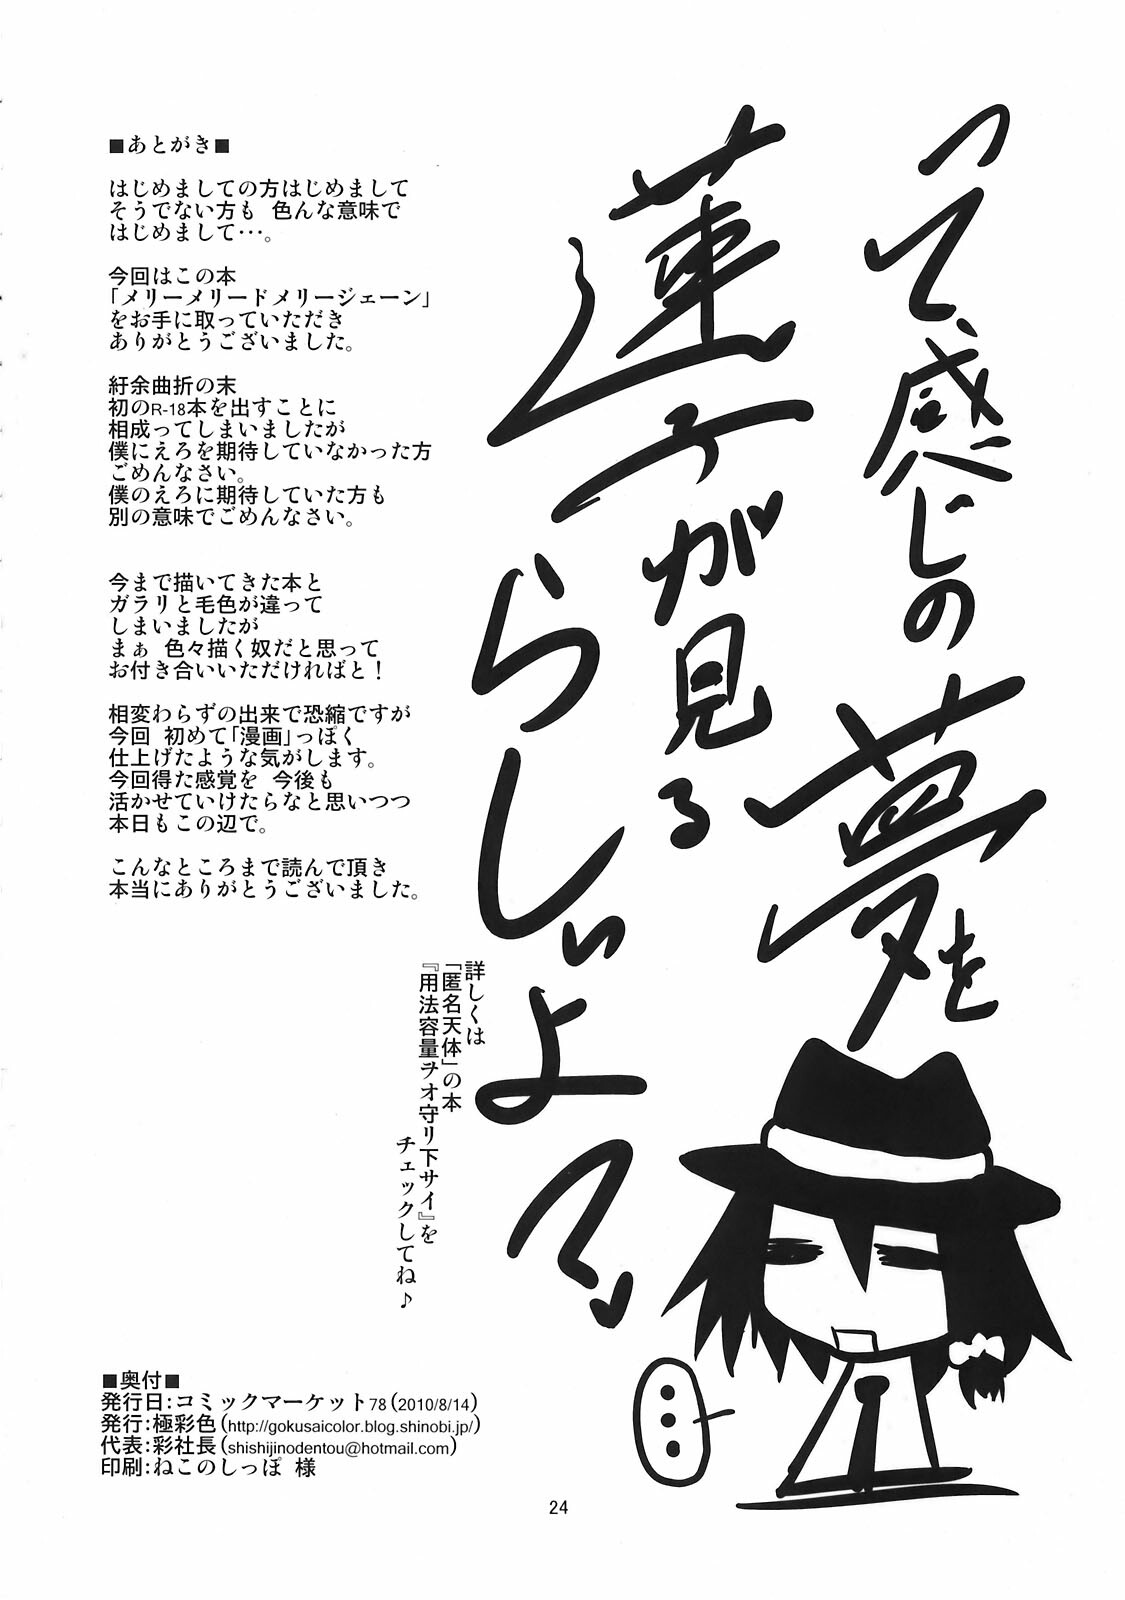 って、感じの
夢を
蓮子が見る
らしぃよ
って♥
…
■あとがき■
はじめましての方はじめまして
そうでない方も 色んな意味で
はじめまして･･･。
今回はこの本
「メリーメリードメリージェーン」
をお手に取っていただき
ありがとうございました。
紆余曲折の末
初のR-18本を出すことに
相成ってしまいましたが
僕にえろを期待していなかった方
ごめんなさい。
僕のえろに期待していた方も
別の意味でごめんなさい。
今まで描いてきた本と
ガラリと毛色が違って
しまいましたが
まぁ 色々描く奴だと思って
お付き合いいただければと！
相変わらずの出来で恐縮ですが
今回 初めて「漫画」っぽく
仕上げたような気がします。
今回得た感覚を 今後も
活かせていけたらなと思いつつ
本日もこの辺で。
こんなところまで読んで頂き
本当にありがとうございました。
詳しくは
「匿名天体」の本
『用法容量ヲオ守リ下サイ』を
チェックしてね♪
■奥付■
発行日：コミックマーケット78（2010/8/14）
発行：極彩色（http://gokusaicolor.blog.shinobi.jp/）
代表：彩社長（shishijinodentou@hotmail.com）
印刷：ねこのしっぽ 様
24